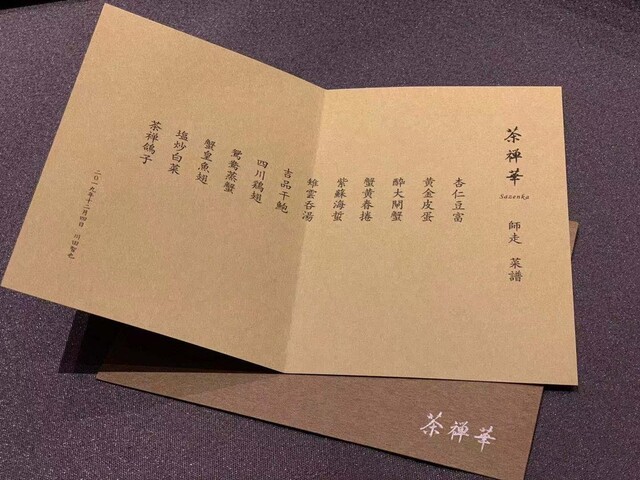 茶禅華
Sazenka
師走 菜譜
杏仁豆富
黄金皮蛋
酔大閘蟹
蟹黄春捲
紫蘇海蜇
雉雲呑湯
吉品干鮑
四川鶏翅
鴛鴦蒸蟹
蟹皇魚翅
塩炒白菜
茶禅鴿子
二〇一九年十二月四日 川田智也
茶禅華